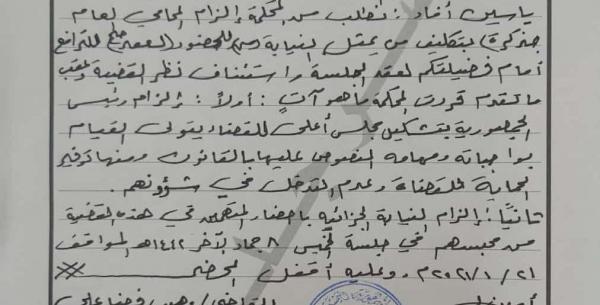 ياسين أفاد: نطلب من المحكمة إلزام المحامي العام
بتكليف من يمثل النيابة للحضور للترافع
أمام فضيلتكم لعقد الجلسة واستئناف نظر القضية وعقب
ما تقدم قررت المحكمة ما هو آتٍ: أولاً: إلزام رئيس
الجمهورية بتشكيل مجلس أعلى للقضاء يتولى القيام
بواجباته ومهامه المنصوص عليها بالقانون ومنها توفير
الحماية للقضاة وعدم التدخل في شؤونهم.
ثانياً: إلزام النيابة الجزائية بإحضار المتهمين في هذه القضية
من محبسهم في جلسة الخميس ٨ جماد آخر ١٤٤٢هـ الموافق
٢١/١/٢٠٢١م وعليه أقفل المحضر